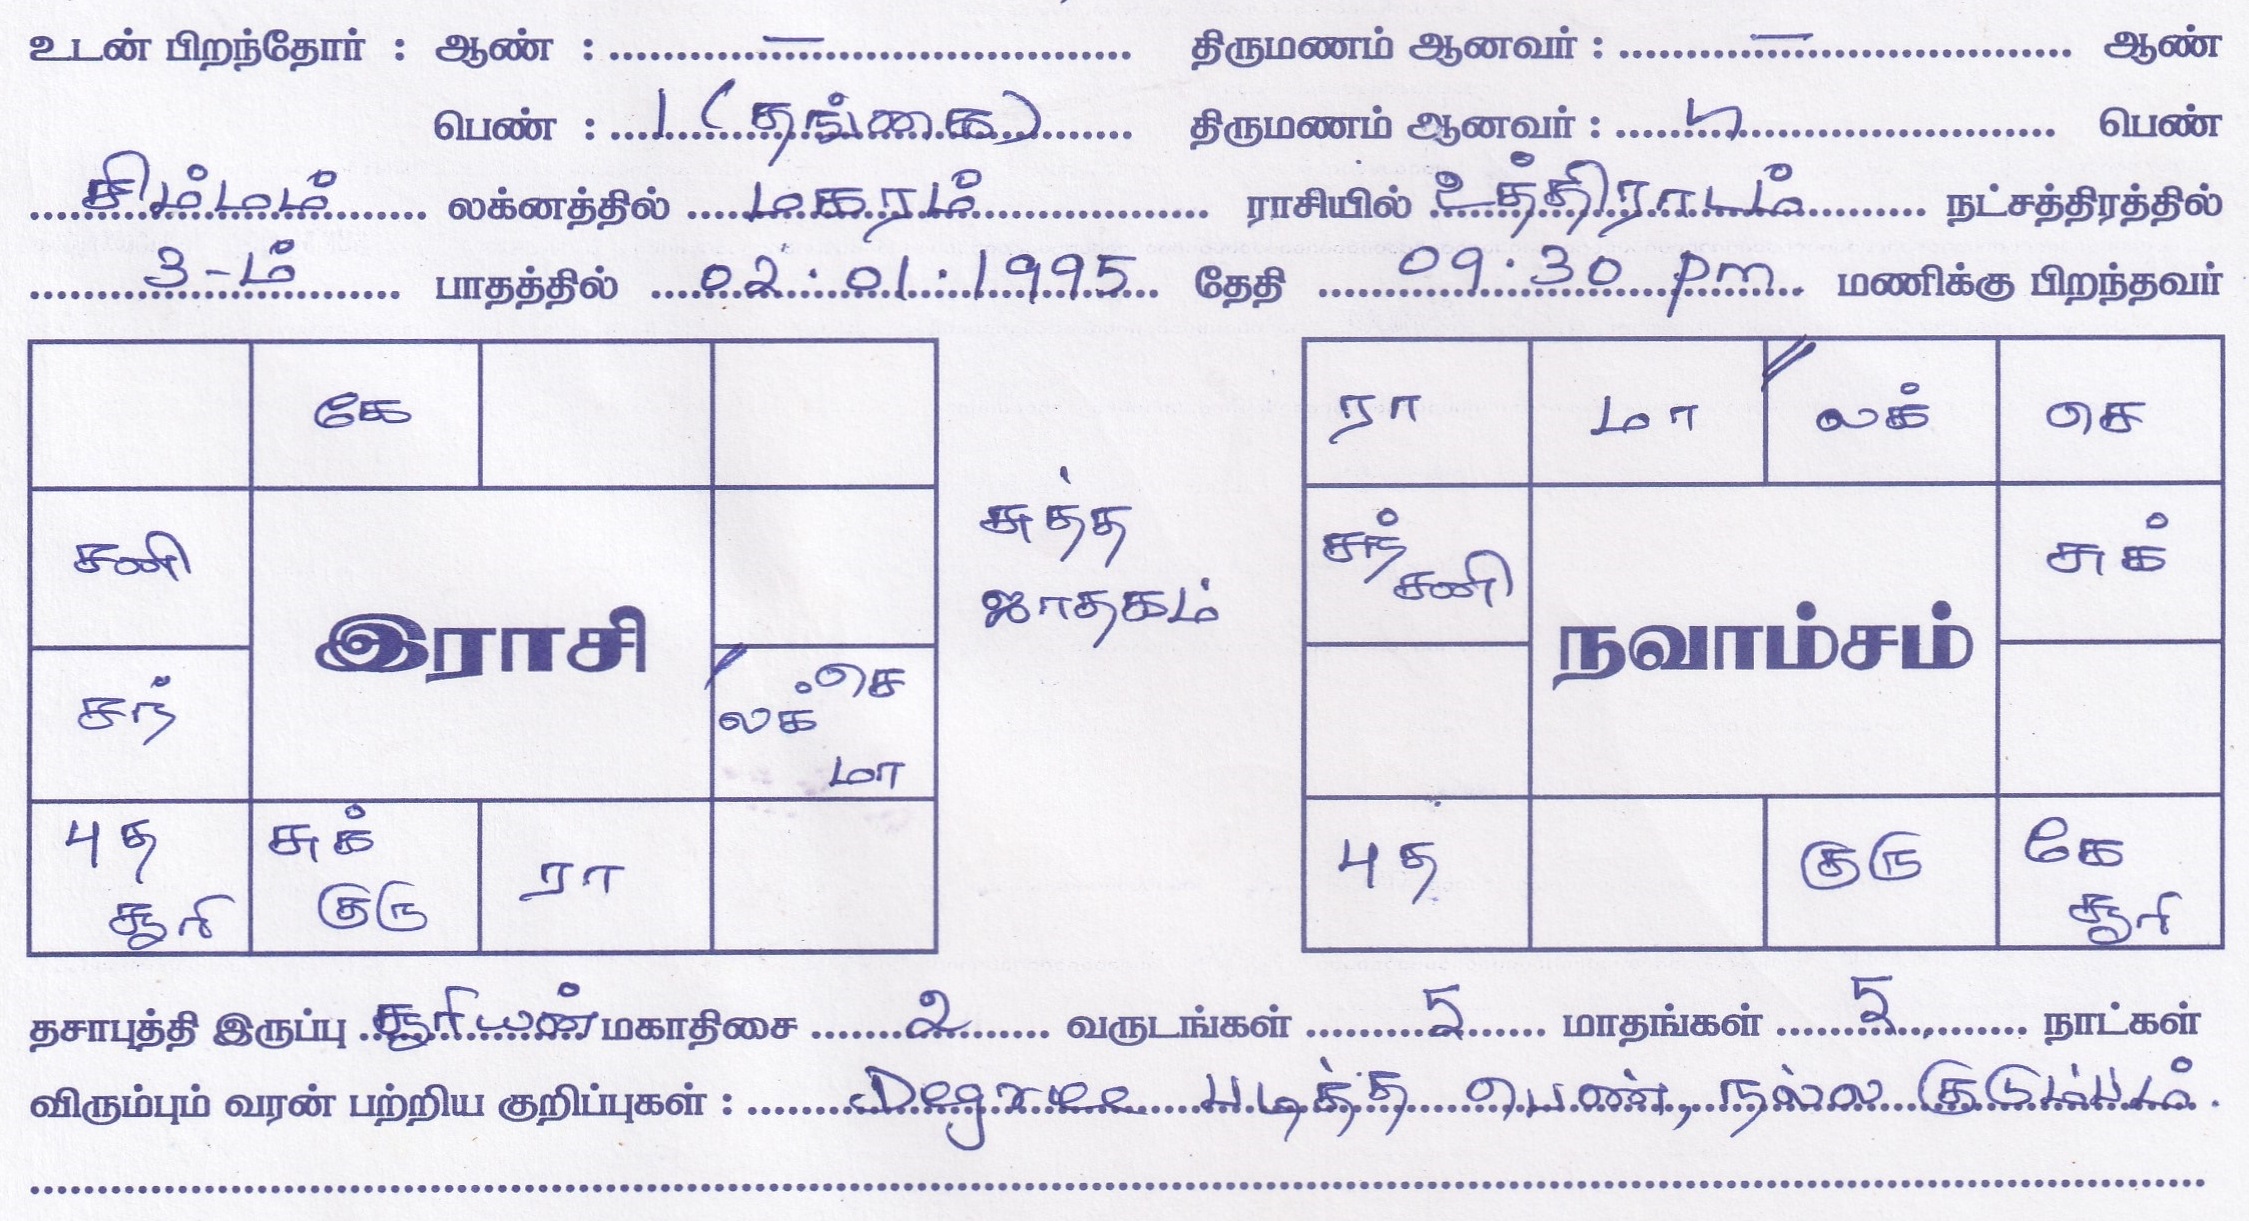 உடன் பிறந்தோர் : ஆண் : — திருமணம் ஆனவர் : — ஆண்
பெண் : 1 (தங்கை) திருமணம் ஆனவர் : பெண்
சிம்மம் லக்னத்தில் மகரம் ராசியில் உத்திராடம் நட்சத்திரத்தில்
3-ம் பாதத்தில் 02.01.1995 தேதி 09.30 pm மணிக்கு பிறந்தவர்
கே
சனி
சந்
லக் செ
மா
புத
சூரி
சுக்
குரு
ரா
இராசி
சுத்த
ஜாதகம்
ரா மா லக் செ
சந்
சனி
சுக்
நவாம்சம்
புத குரு கே
சூரி
தசாபுத்தி இருப்பு சூரியன் மகாதிசை 2 வருடங்கள் 5 மாதங்கள் 5 நாட்கள்
விரும்பும் வரன் பற்றிய குறிப்புகள் : Degree படித்த பெண், நல்ல குடும்பம்.